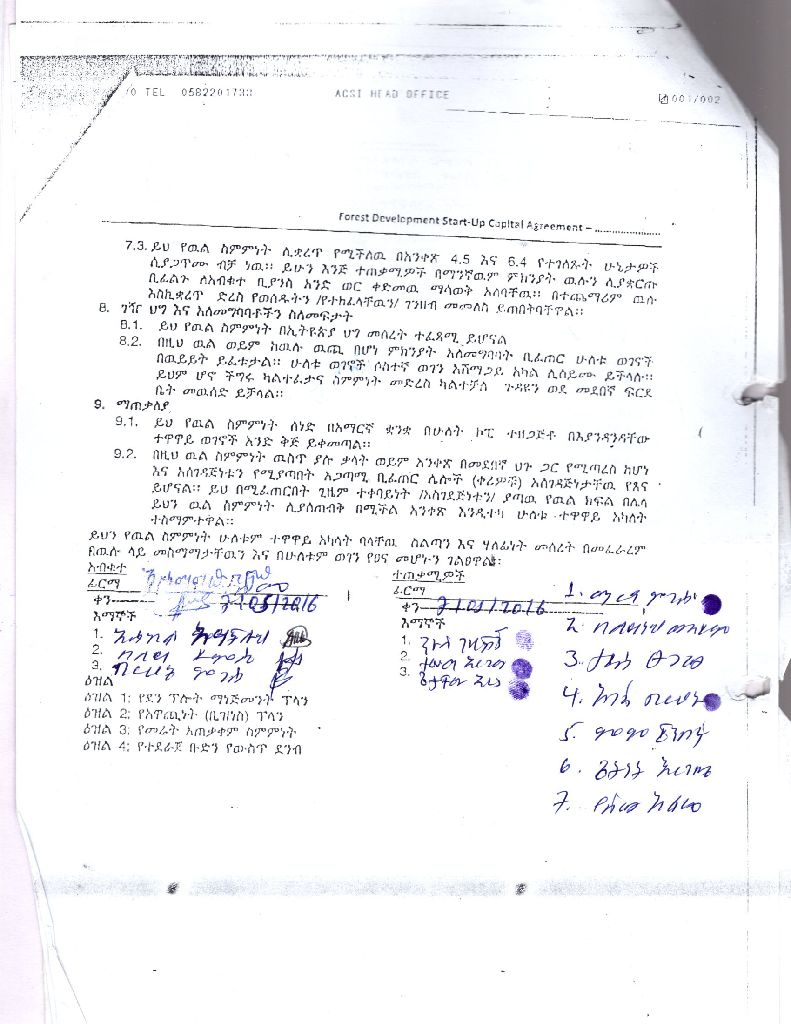 /O TEL 0582201733 ACSI HEAD OFFICE 001/002
Forest Development Start-Up Capital Agreement – ......................
7.3. ይህ የዉል ስምምነት ሊቋረጥ የሚችለዉ በአንቀጽ 4.5 እና 6.4 የተገለጹት ሁኔታዎች
ሲያጋጥሙ ብቻ ነዉ፡፡ ይሁን እንጅ ተጠቃሚዎች በማንኛዉም ምክንያት ዉሉን ሊያቋርጡ
ቢፈልጉ ለአብቁተ ቢያንስ አንድ ወር ቀድመዉ ማሳወቅ አለባቸዉ፡፡ በተጨማሪም ዉሉ
እስኪቋረጥ ድረስ የወሰዱትን /የተከፈላቸዉን/ ገንዘብ መመለስ ይጠበቅባቸዋል፡፡
8. ገዥ ህግ እና አለመግባባቶችን ስለመፍታት
8.1. ይህ የዉል ስምምነት በኢትዮጵያ ህግ መሰረት ተፈጻሚ ይሆናል
8.2. በዚህ ዉል ወይም ከዉሉ ዉጪ በሆነ ምክንያት አለመግባባት ቢፈጠር ሁለቱ ወገኖች
በዉይይት ይፈቱታል፡፡ ሁለቱ ወገኖች ሶስተኛ ወገን አሸማጋይ አካል ሊሰይሙ ይችላሉ፡፡
ይህም ሆኖ ችግሩ ካልተፈታና ስምምነት መድረስ ካልተቻለ ጉዳዩን ወደ መደበኛ ፍርድ
ቤት መዉሰድ ይቻላል፡፡
9. ማጠቃለያ
9.1. ይህ የዉል ስምምነት ሰነድ በአማርኛ ቋንቋ በሁለት ኮፒ ተዘጋጅቶ በእያንዳንዳቸው
ተዋዋይ ወገኖች አንድ ቅጅ ይቀመጣል፡፡
9.2. በዚህ ዉል ስምምነት ዉስጥ ያሉ ቃላት ወይም አንቀጽ በመደበኛ ህጉ ጋር የሚጣረስ ከሆነ
እና አስገዳጅነቱን የሚያጣበት አጋጣሚ ቢፈጠር ሌሎች (ቀሪዎቹ) አስገዳጅነታቸዉ የጸና
ይሆናል፡፡ ይህ በሚፈጠርበት ጊዜም ተቀባይነት /አስገዳጅነቱን/ ያጣዉ የዉል ክፍል በሌላ
ይህን ዉል ስምምነት ሊያስጠብቅ በሚችል አንቀጽ እንዲተካ ሁለቱ ተዋዋይ አካላት
ተስማምተዋል፡፡
ይህን የዉል ስምምነት ሁለቱም ተዋዋይ አካላት ባላቸዉ ስልጣን እና ሃላፊነት መሰረት በመፈራረም
በዉሉ ላይ መስማማታቸዉን እና በሁለቱም ወገን የፀና መሆኑን ገልፀዋል፡፡
አብቁተ
ፊርማ
ቀን 7/05/2016
እማኞች
1.
2.
3.
ተጠቃሚዎች
ፊርማ
ቀን 7/05/2016
እማኞች
1.
2.
3.
1.
2.
3.
4.
5.
6.
7.
ዕዝል
ዕዝል 1: የደን ፕሎት ማነጅመንት ፕላን
ዕዝል 2: የአዋጪነት (ቢዝነስ) ፕላን
ዕዝል 3: የመሬት አጠቃቀም ስምምነት
ዕዝል 4: የተደራጀ ቡድን የውስጥ ደንብ